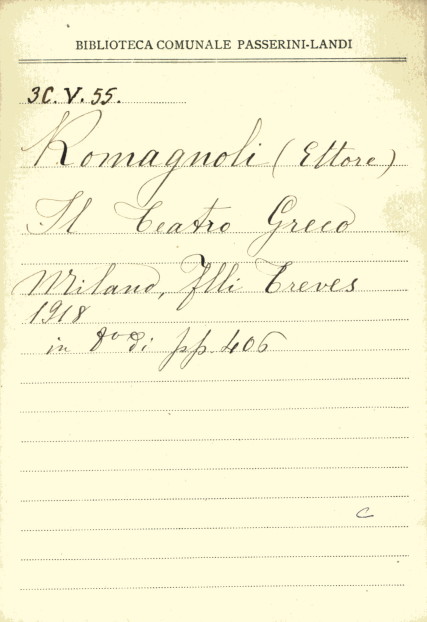 BIBLIOTECA COMUNALE PASSERINI-LANDI
3C. V. 55.
Romagnoli (Ettore)
Il Teatro Greco
Milano, Flli Treves
1918
in 8vo di pp. 406
c